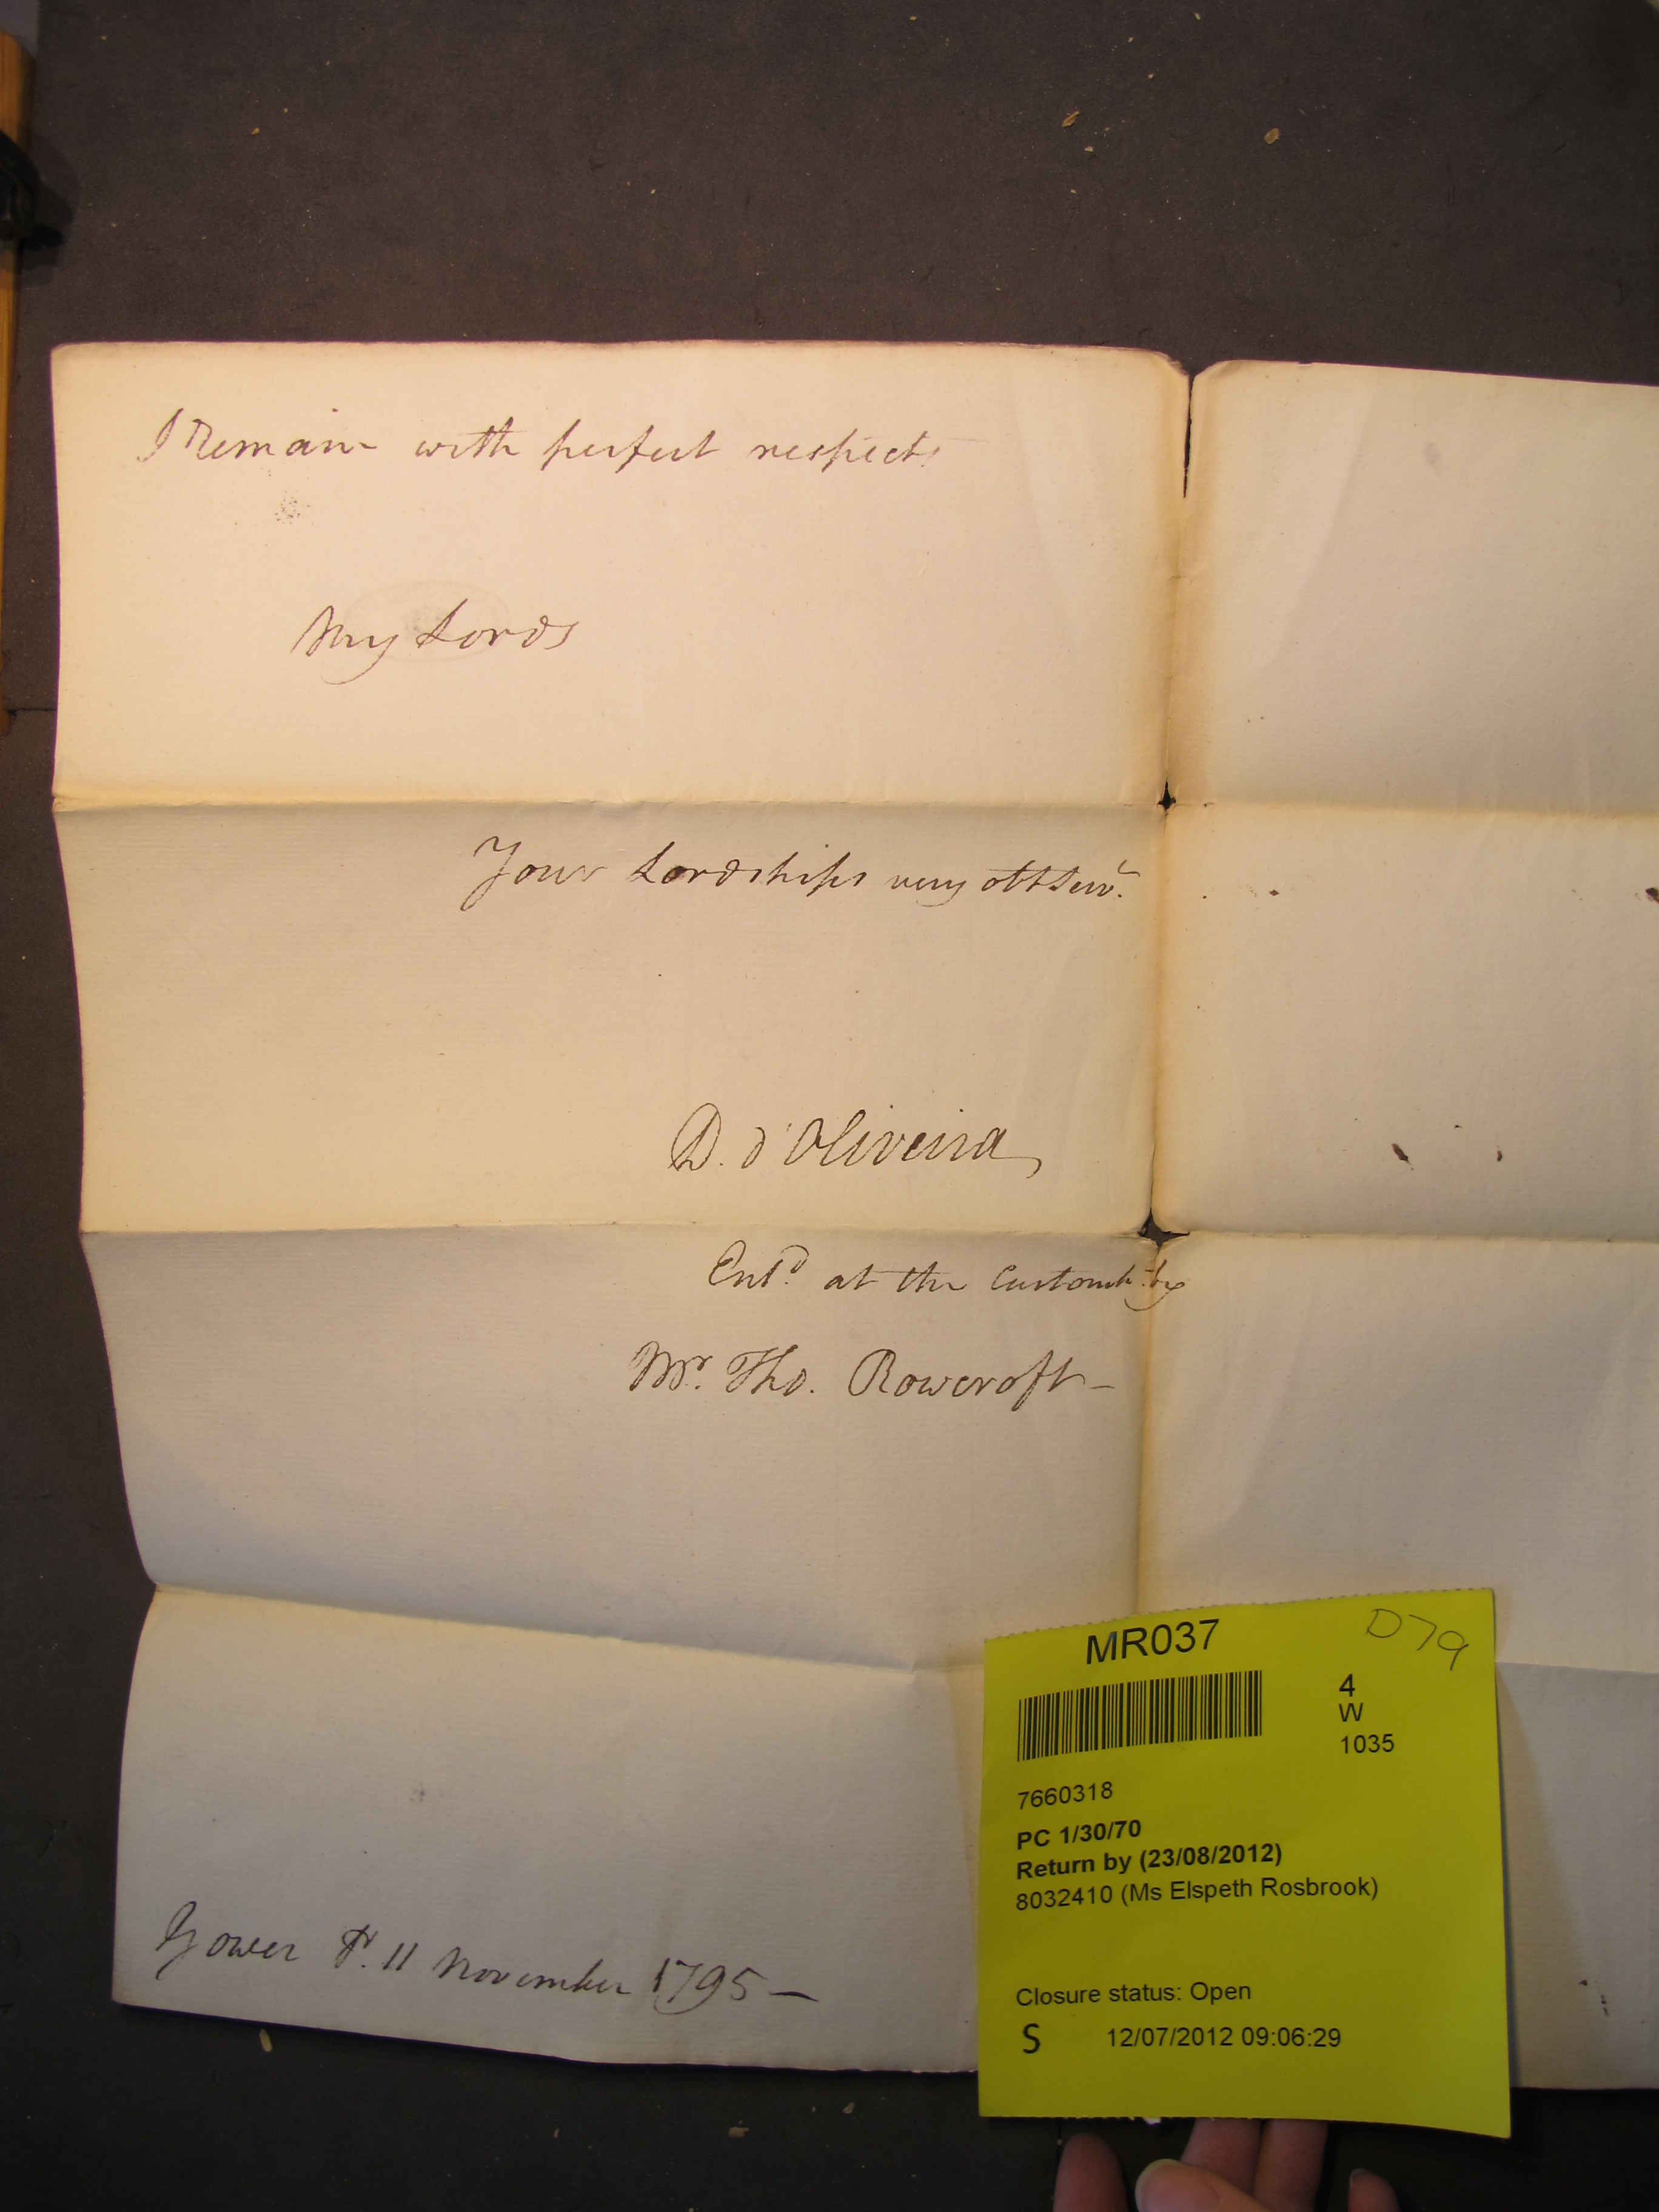 I Remain with perfect respect
My Lords
Your Lordships very obt Servt.
D. d'Oliveira
Entd. at the Customh. by
Mr. Tho. Rowcroft –
Gower St. 11 November 1795 –
MR037
D79
4
W
1035
7660318
PC 1/30/70
Return by (23/08/2012)
8032410 (Ms Elspeth Rosbrook)
Closure status: Open
S 12/07/2012 09:06:29